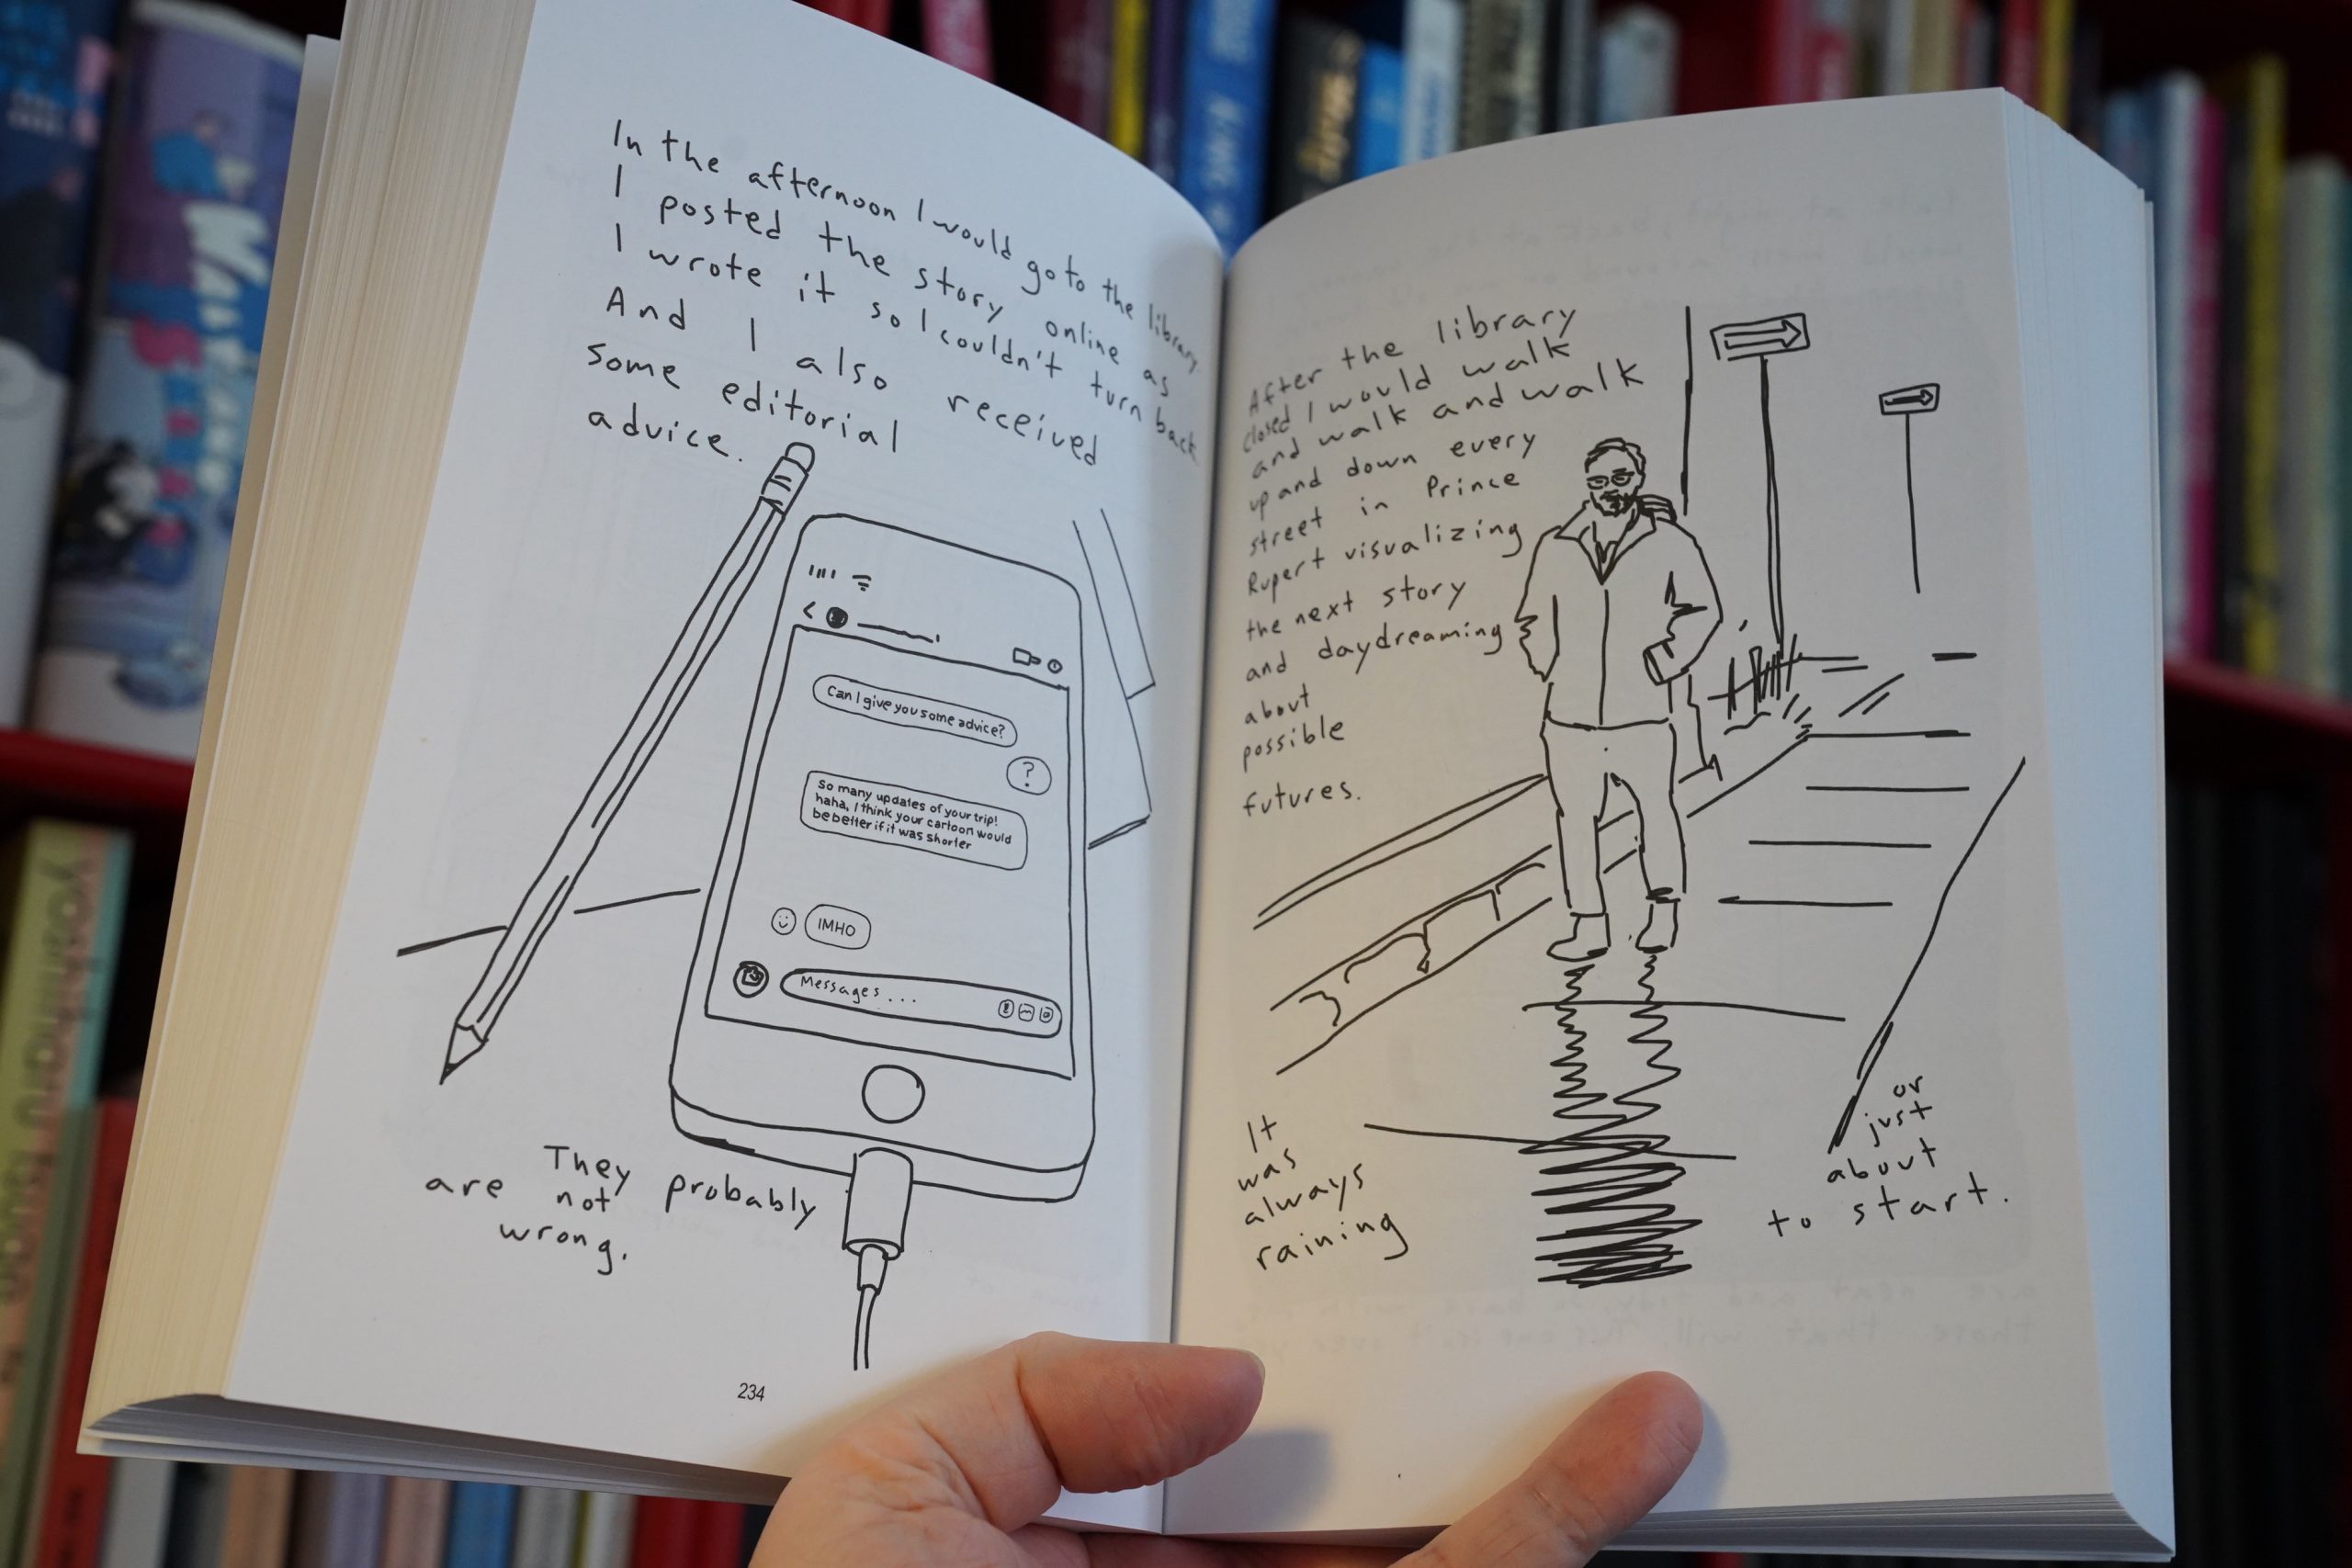 In the afternoon I would go to the library.
I posted the story online as
I wrote it so I couldn't turn back.
And I also received
some editorial
advice.
Can I give you some advice?
?
So many updates of your trip!
haha, I think your cartoon would
be better if it was shorter
IMHO
Messages...
They probably
are not
wrong.
234
After the library
closed I would walk
and walk and walk
up and down every
street in Prince
Rupert visualizing
the next story
and daydreaming
about
possible
futures.
It
was
always
raining
or
just
about
to start.